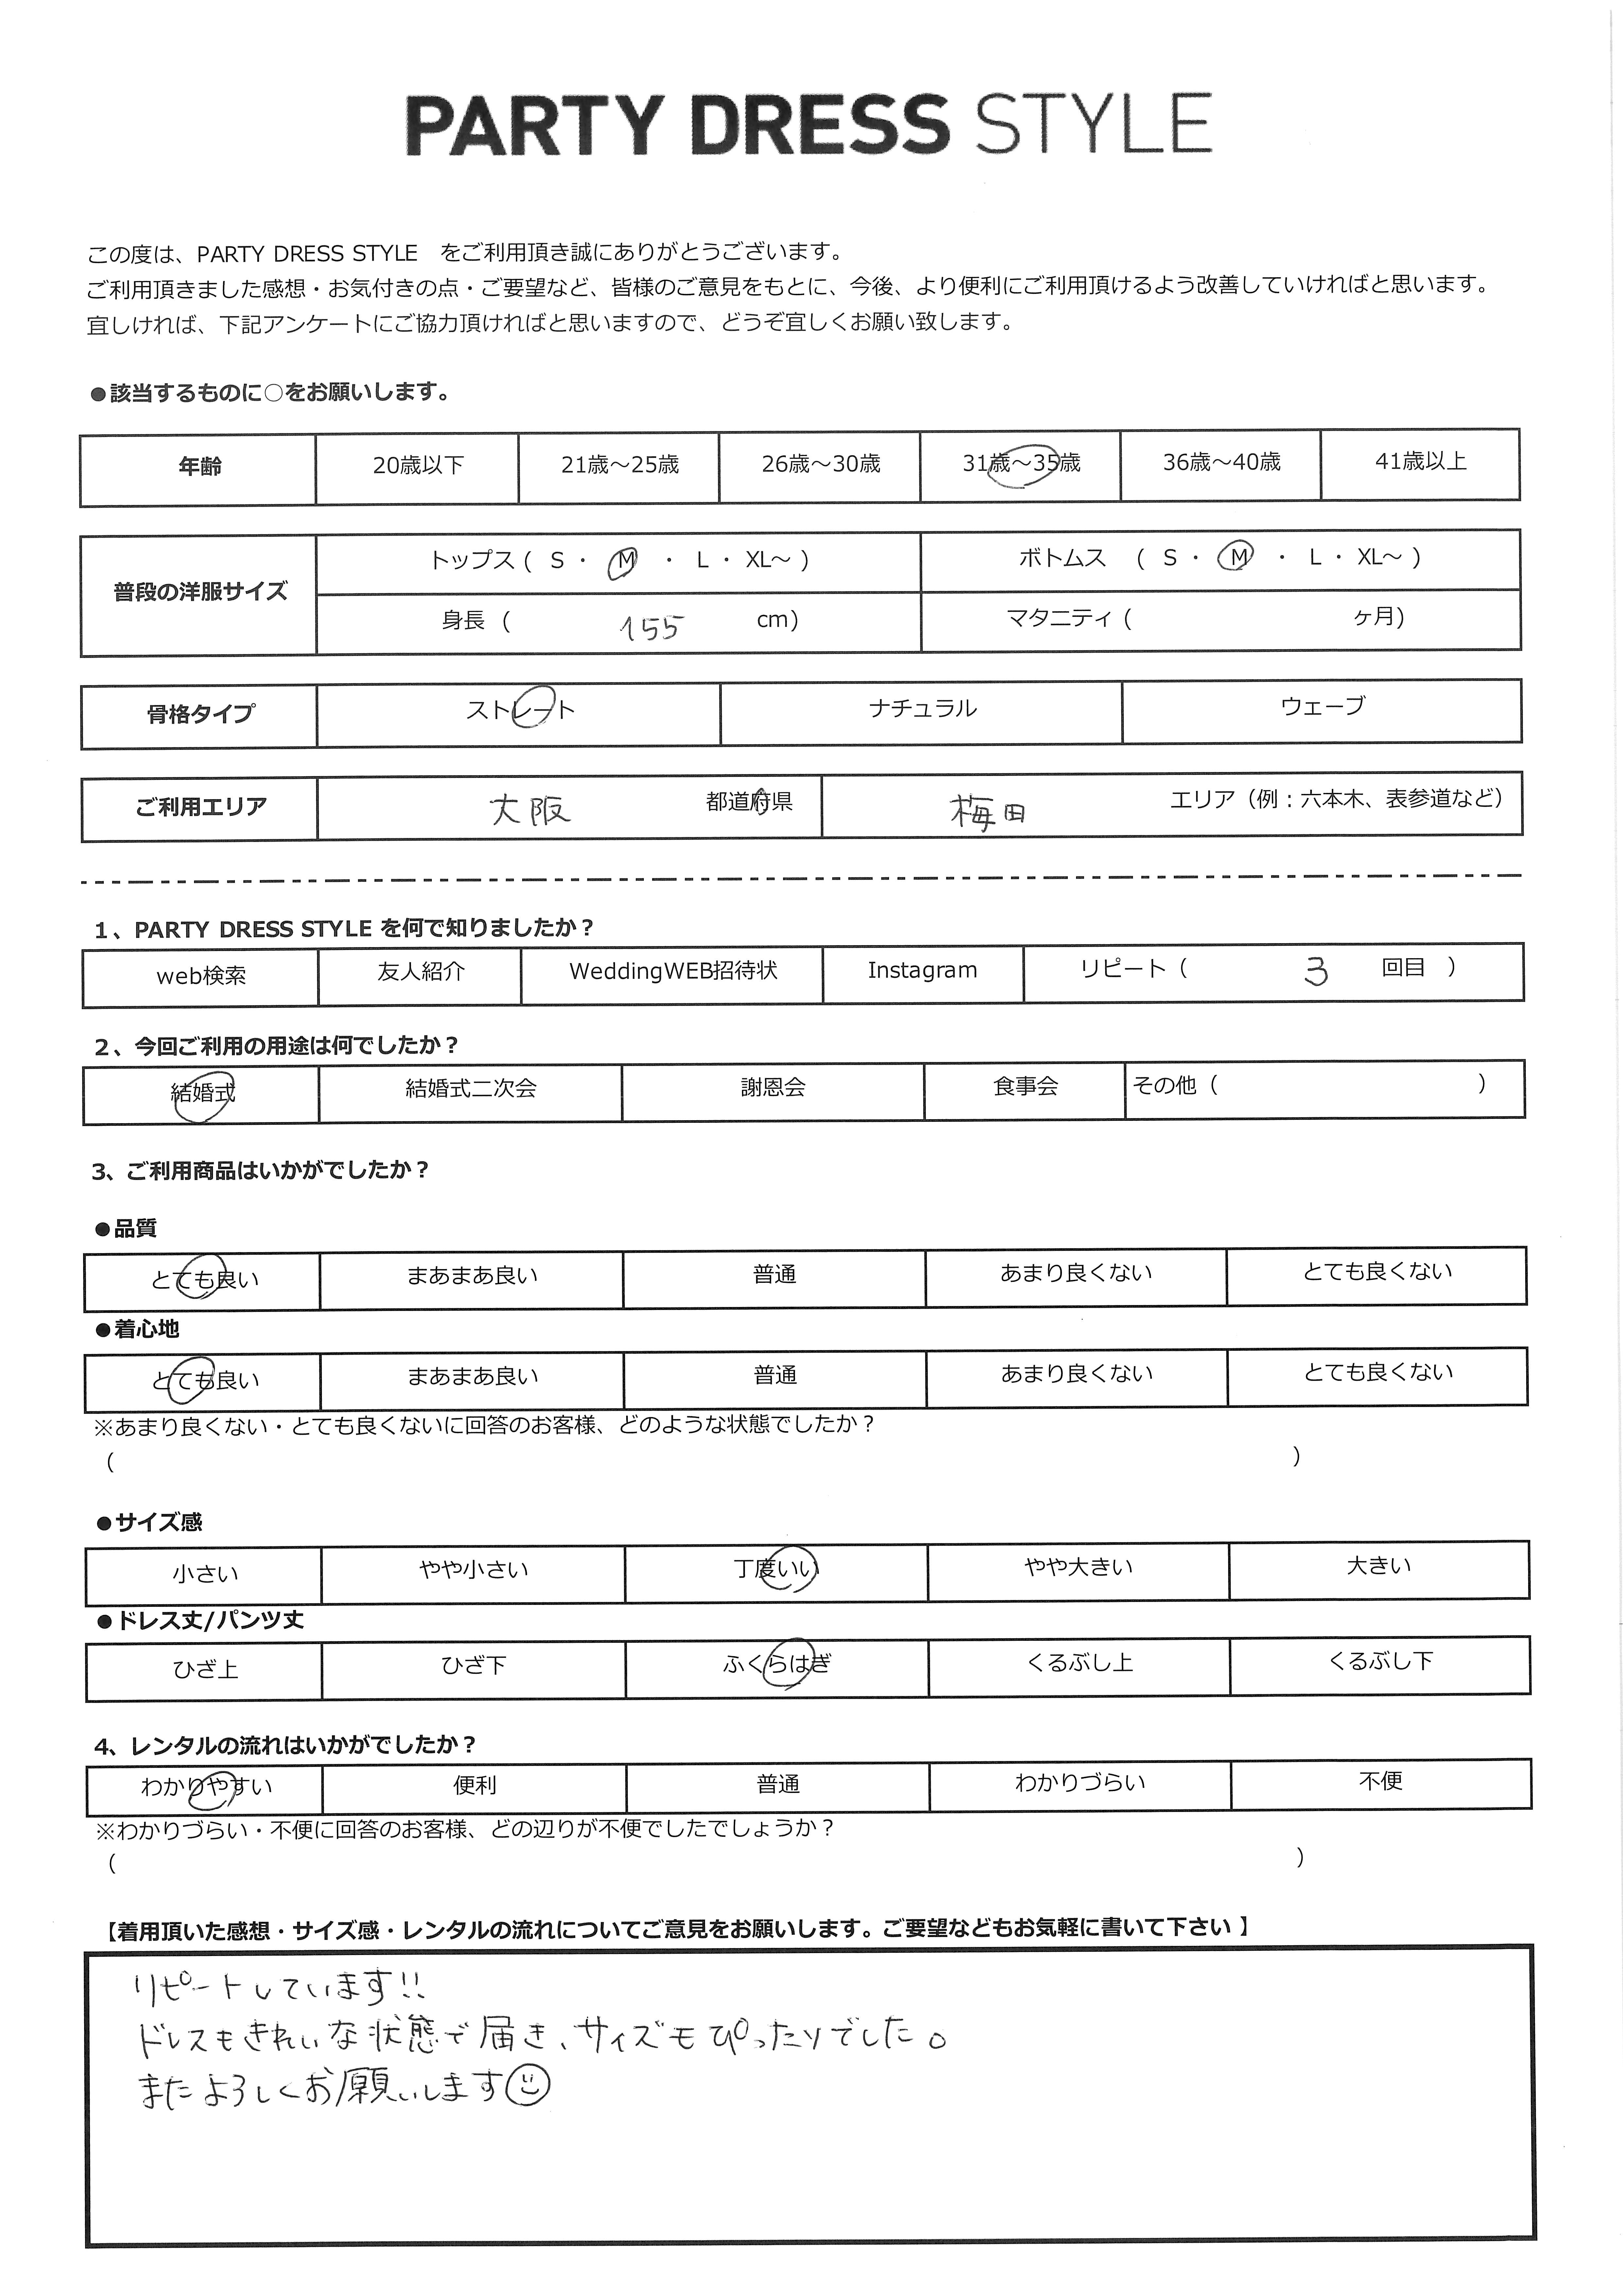 PARTY DRESS STYLE
この度は、PARTY DRESS STYLE　をご利用頂き誠にありがとうございます。
ご利用頂きました感想・お気付きの点・ご要望など、皆様のご意見をもとに、今後、より便利にご利用頂けるよう改善していければと思います。
宜しければ、下記アンケートにご協力頂ければと思いますので、どうぞ宜しくお願い致します。
●該当するものに○をお願いします。
年齢 20歳以下 21歳～25歳 26歳～30歳 31歳～35歳 36歳～40歳 41歳以上
普段の洋服サイズ
トップス ( S ・ M ・ L ・ XL～ ) ボトムス ( S ・ M ・ L ・ XL～ )
身長 ( 155 cm) マタニティ ( ヶ月)
骨格タイプ ストレート ナチュラル ウェーブ
ご利用エリア 大阪 都道府県 梅田 エリア（例：六本木、表参道など）
1、PARTY DRESS STYLE を何で知りましたか？
web検索 友人紹介 WeddingWEB招待状 Instagram リピート（ 3 回目 ）
2、今回ご利用の用途は何でしたか？
結婚式 結婚式二次会 謝恩会 食事会 その他（ ）
3、ご利用商品はいかがでしたか？
●品質
とても良い まあまあ良い 普通 あまり良くない とても良くない
●着心地
とても良い まあまあ良い 普通 あまり良くない とても良くない
※あまり良くない・とても良くないに回答のお客様、どのような状態でしたか？
（ ）
●サイズ感
小さい やや小さい 丁度いい やや大きい 大きい
●ドレス丈/パンツ丈
ひざ上 ひざ下 ふくらはぎ くるぶし上 くるぶし下
4、レンタルの流れはいかがでしたか？
わかりやすい 便利 普通 わかりづらい 不便
※わかりづらい・不便に回答のお客様、どの辺りが不便でしたでしょうか？
（ ）
【着用頂いた感想・サイズ感・レンタルの流れについてご意見をお願いします。ご要望などもお気軽に書いて下さい 】
リピートしています!!
ドレスもきれいな状態で届き、サイズもぴったりでした。
またよろしくお願いします☺